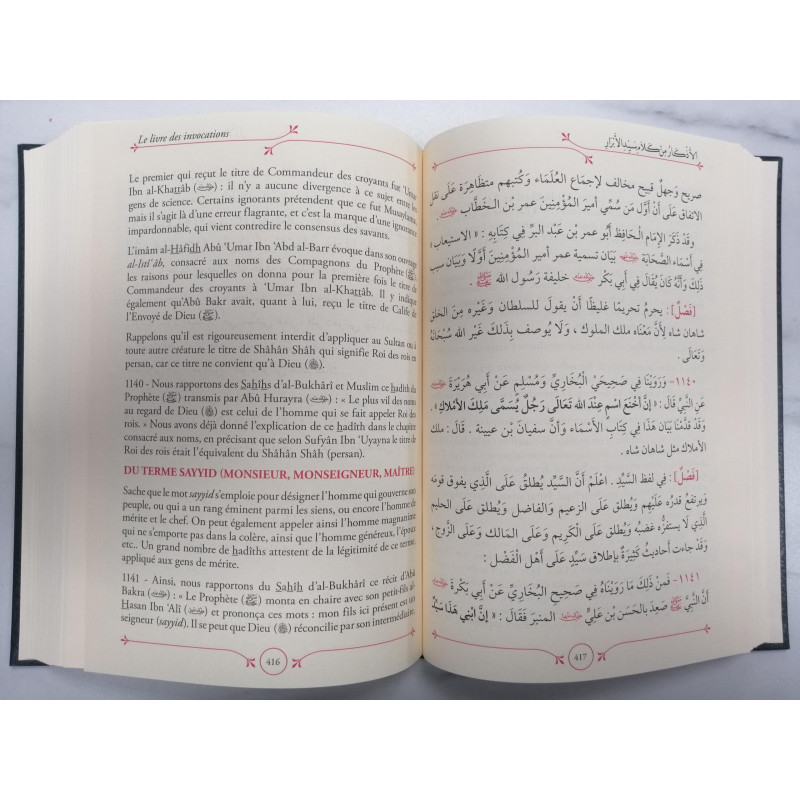 Le livre des invocations
Le premier qui reçut le titre de Commandeur des croyants fut 'Umar
Ibn al-Khattâb (رضي الله عنه) : il n'y a aucune divergence à ce sujet entre les
gens de science. Certains ignorants prétendent que ce fut Musaylama,
mais il s'agit là d'une erreur flagrante, et c'est la marque d'une ignorance
impardonnable, qui vient contredire le consensus des savants.
L'imâm al-Hâfidh Abû 'Umar Ibn 'Abd al-Barr évoque dans son ouvrage
al-Istî'âb, consacré aux noms des Compagnons du Prophète (ﷺ),
les raisons pour lesquelles on donna pour la première fois le titre de
Commandeur des croyants à 'Umar Ibn al-Khattâb. Il y indique
également qu'Abû Bakr avait, quant à lui, reçu le titre de Calife de
l'Envoyé de Dieu (ﷺ).
Rappelons qu'il est rigoureusement interdit d'appliquer au Sultan ou à
toute autre créature le titre de Shâhân Shâh qui signifie Roi des rois en
persan, car ce titre ne convient qu'à Dieu (ﷻ).
1140 - Nous rapportons des Sahîhs d'al-Bukhârî et Muslim ce hadîth du
Prophète (ﷺ) transmis par Abû Hurayra (رضي الله عنه) : « Le plus vil des noms
au regard de Dieu (ﷻ) est celui de l'homme qui se fait appeler Roi des
rois. » Nous avons déjà donné l'explication de ce hadîth dans le chapitre
consacré aux noms, en précisant que selon Sufyân Ibn 'Uyayna le titre de
Roi des rois était l'équivalent du Shâhân Shâh (persan).
DU TERME SAYYID (MONSIEUR, MONSEIGNEUR, MAÎTRE)
Sache que le mot sayyid s'emploie pour désigner l'homme qui gouverne son
peuple, ou qui a un rang éminent parmi les siens, ou encore l'homme de
mérite et le chef. On peut également appeler ainsi l'homme magnanime
qui ne s'emporte pas dans la colère, ainsi que l'homme généreux, l'époux
etc.. Un grand nombre de hadîths attestent de la légitimité de ce terme,
appliqué aux gens de mérite.
1141 - Ainsi, nous rapportons du Sahîh d'al-Bukhârî ce récit d'Abû
Bakra (رضي الله عنه) : « Le Prophète (ﷺ) monta en chaire avec son petit-fils al-
Hasan Ibn 'Alî (رضي الله عنه) et prononça ces mots : mon fils ici présent est un
seigneur (sayyid). Il se peut que Dieu (ﷻ) réconcilie par son intermédiaire,
416
الأذكار من كلام سيد الأبرار
صريح وَجهلٌ قبيح مخالف لإجماع العُلَمَاء وَكُتبهم متظاهِرَة عَلَى نقل
الاتفاق عَلَى أَنْ أَوَّل مَن سُمِّي أميرَ المُؤْمِنِينَ عمر بن الخَطَّاب رضي الله عنه .
وَقَدْ ذَكَرَ الإِمَام الحَافِظ أَبو عمر بن عَبد البر في كِتَابِه : « الاستيعاب »
فِي أَسْمَاء الصَّحَابَة رضي الله عنهم بيَان تسمِية عمر أمير المُؤْمِنِينَ أَوَّلًا وَبيَان سبب
ذَلِكَ وَأَنَّهُ كَانَ يُقَال فِي أَبِي بَكْر رضي الله عنه خليفة رَسُول الله ﷺ .
[فَصْلٌ] : يحرمُ تحريمًا غليظًا أَنْ يقولَ للسلطان وَغَيْره مِنَ الخلق
شاهان شاه لِأَنَّ مَعْنَاه ملك الملوك ، وَلَا يُوصف بِذَلِكَ غَيْر الله سُبْحَانَهُ
وَتَعَالَى .
١١٤٠- وَرَوَيْنَا فِي صَحِيحَي البُخَارِيِّ وَمُسْلِم عَنْ أَبِي هُرَيْرَة رضي الله عنه
عَنِ النَّبِيِّ قَالَ : « إِنَّ أَخْنَعَ اسْمٍ عِنْدَ الله تَعَالَى رَجُلٌ يُسَمَّى مَلِكَ الأَمْلَاكِ » .
وَقَدْ قدَّمْنَا بَيَان هَذَا فِي كِتَاب الأَسْمَاء وَأَنَّ سفيَان بن عيينة . قَالَ : ملك
الأملاك مثل شاهان شاه .
[فَصْلٌ] : في لفظ السَّيِّد . اعْلَمْ أَنَّ السَّيِّد يُطلقُ عَلَى الَّذِي يفوق قومَه
وَيرتفعُ قدرُه عَلَيْهِم وَيُطلق عَلَى الزعيم وَالفاضل وَيُطلق عَلَى الحليم
الَّذِي لَا يستفزُّه غضبُه وَيُطلق عَلَى الكَرِيم وَعَلَى المَالك وَعَلَى الزَّوج ،
وَقَدْ جاءت أَحاديثُ كَثِيرَةٌ بِإِطلَاق سَيِّد عَلَى أَهْل الفَضْل :
١١٤١- فَمنْ ذَلِكَ مَا رَوَيْنَاهُ فِي صَحِيحِ البُخَارِيِّ عَنْ أَبِي بَكْرَة رضي الله عنه
أَنَّ النَّبِيَّ ﷺ صَعِدَ بِالحَسَن بْن عَلِيٍّ رضي الله عنهما المنبرَ فَقَالَ : « إِنَّ ابْنِي هَذَا سَيِّدٌ
417